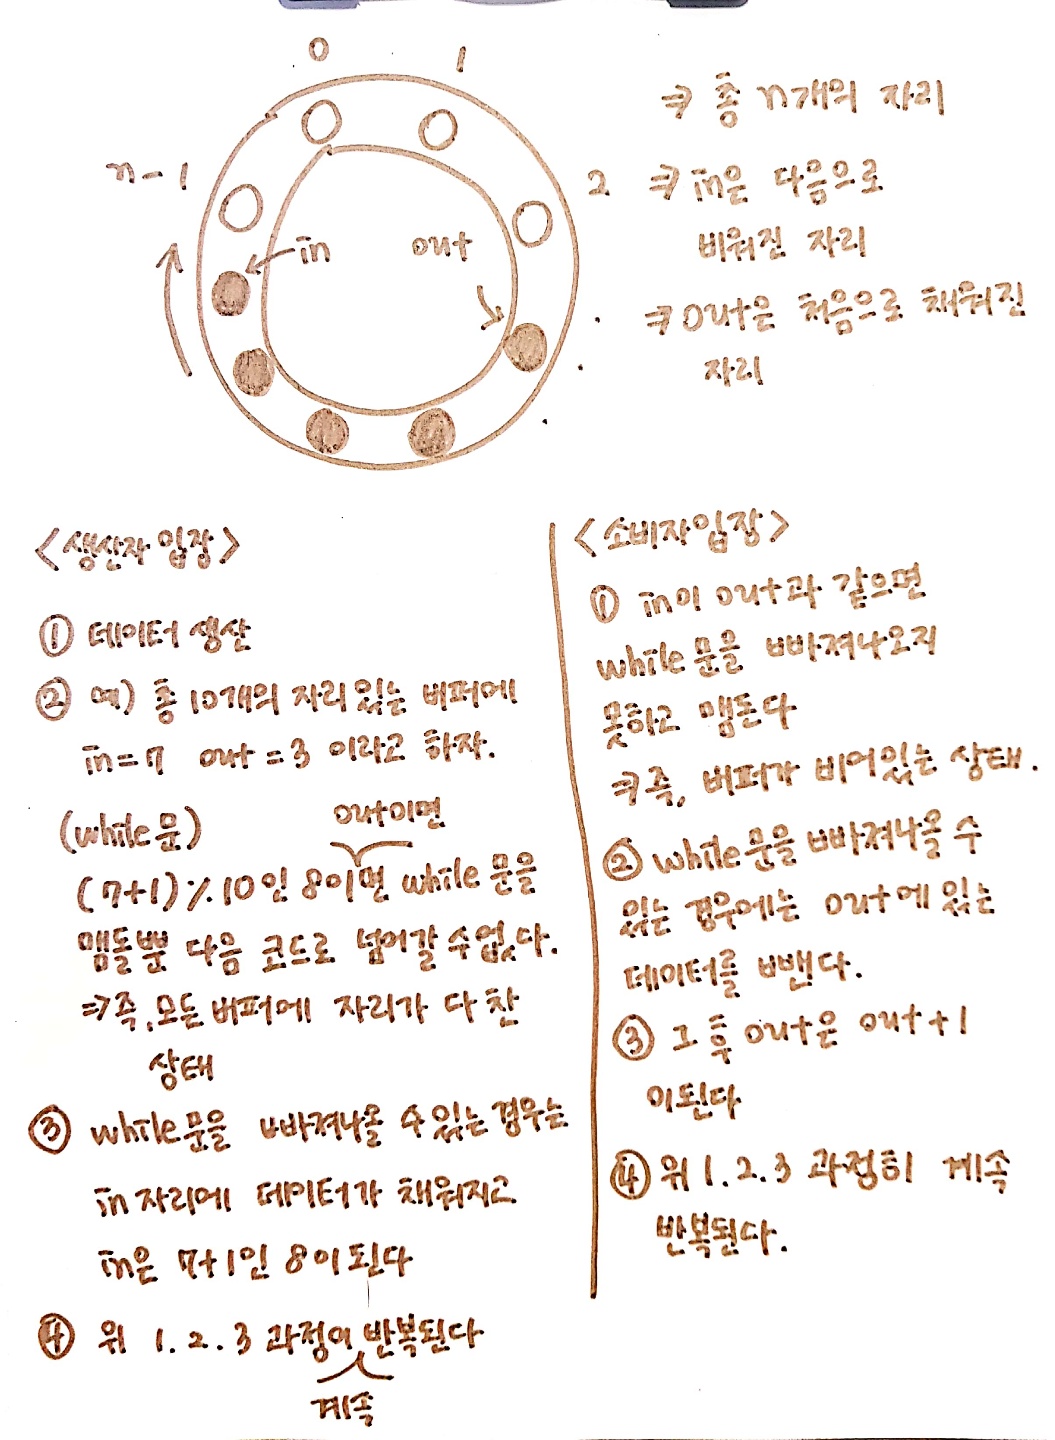 0
1
n-1
2
in
out
⇒ 총 n개의 자리
⇒ in은 다음으로
비워진 자리
⇒ out은 처음으로 채워진
자리
<생산자 입장>
① 데이터 생산
② 예) 총 10개의 자리 있는 버퍼에
in=7 out=3 이라고 하자.
(while문)
out이면
(7+1)%10인 8이면 while문을
맴돌뿐 다음 코드로 넘어갈 수 없다.
⇒ 즉, 모든 버퍼에 자리가 다 찬
상태
③ while문을 빠져나올 수 있는 경우는
in자리에 데이터가 채워지고
in은 7+1인 8이 된다
④ 위 1.2.3 과정이 반복된다
계속
<소비자입장>
① in이 out과 같으면
while문을 빠져나오지
못하고 맴돈다
⇒ 즉, 버퍼가 비어있는 상태.
② while문을 빠져나올 수
있는 경우에는 out에 있는
데이터를 빼낸다.
③ 그 후 out은 out+1
이된다
④ 위 1.2.3 과정히 계속
반복된다.